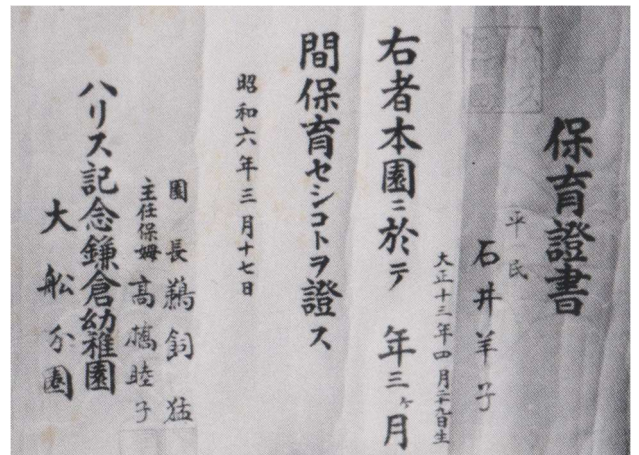 保育證書
平民
石井羊子
大正十三年四月二十九日生
右者本園ニ於テ 年三ヶ月
間保育セシコトヲ證ス
昭和六年三月十七日
園長 鵜飼猛
主任保姆 高橋睦子
ハリス記念鎌倉幼稚園
大船分園